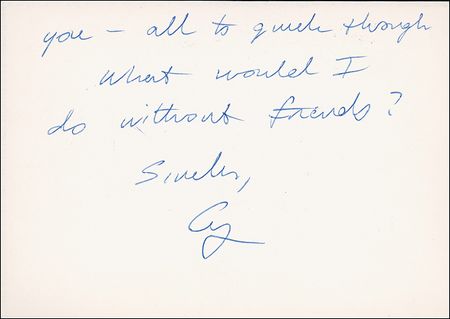 you – all to quick though
what would I
do without friends?
Sincely,
Cy